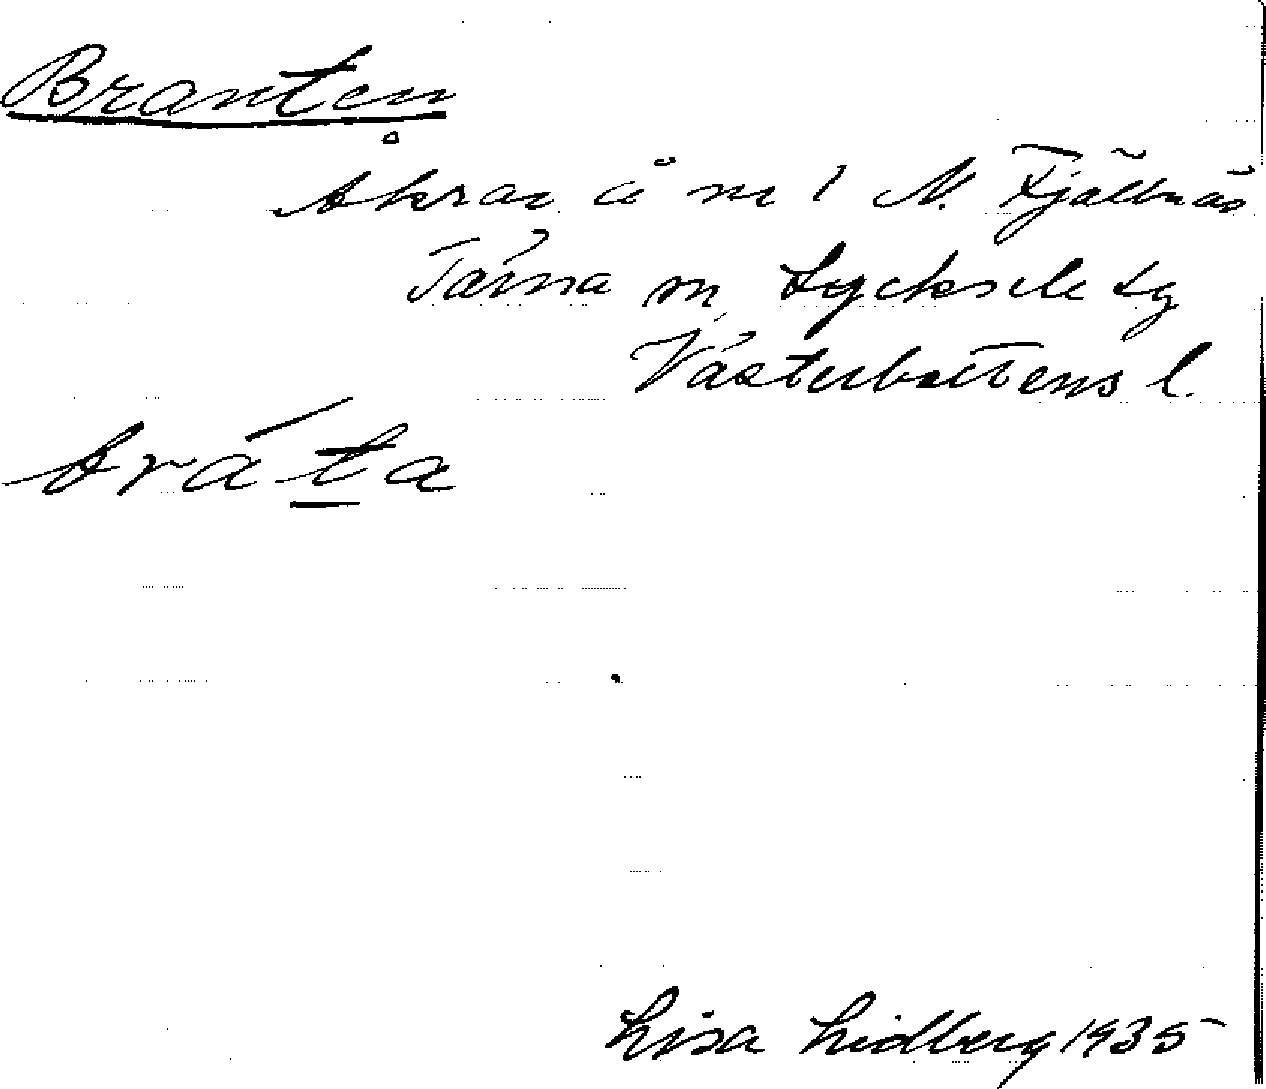 Branten
Åkrar å nr 1 N. Fjällnäs
Tärna sn Lycksele lg
Västerbottens l.
Aráta
Lisa Lidberg 1935